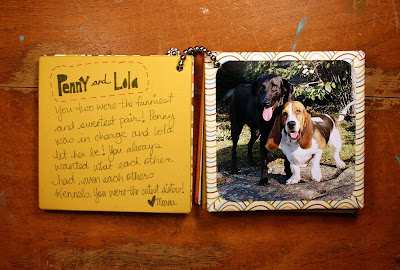 Penny and Lola
You two were the funniest
and sweetest pair! Penny
was in charge and Lola
let her be! You always
wanted what each other
had, even each others
Kennels. You were the cutest sisters!
♥ Mama